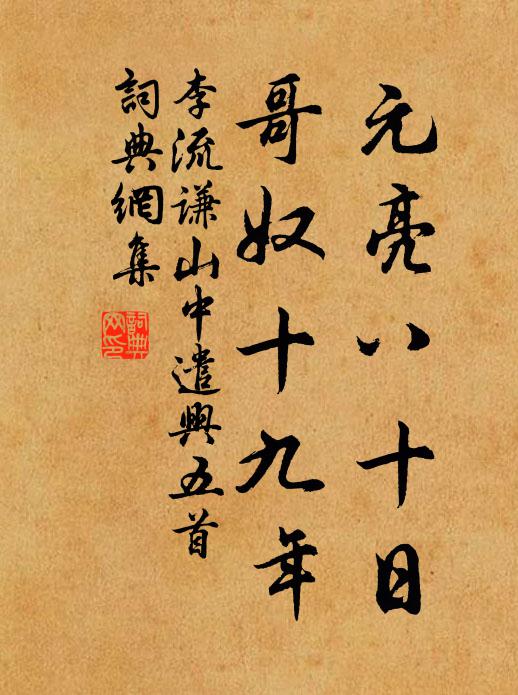 元亮八十日
哥奴十九年
李流谦山中遣興五首
詞典網集
詞典網印